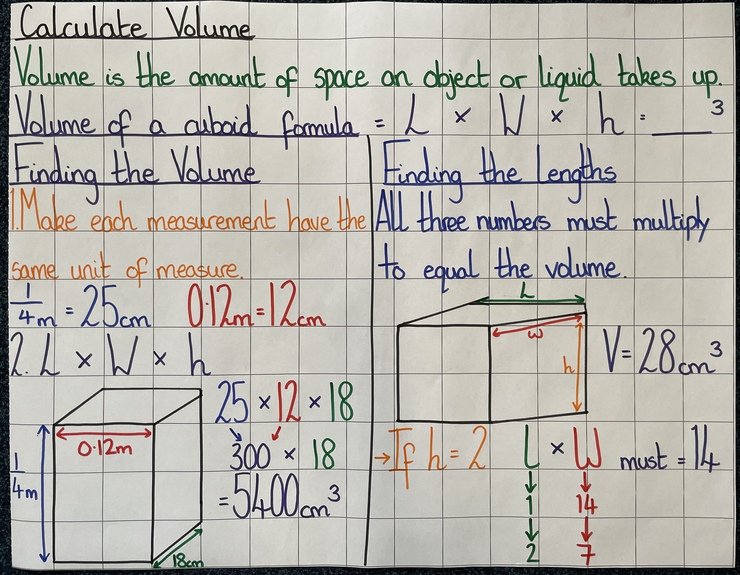 Calculate Volume
Volume is the amount of space an object or liquid takes up.
Volume of a cuboid formula = L × W × h = ___³
Finding the Volume
1. Make each measurement have the
same unit of measure.
1/4m = 25cm 0.12m = 12cm
2. L × W × h
25 × 12 × 18
300 × 18
= 5400cm³
0.12m
1/4m
18cm
Finding the Lengths
All three numbers must multiply
to equal the volume.
L
w
h
V = 28cm³
→ If h = 2 L × W must = 14
1 14
2 7